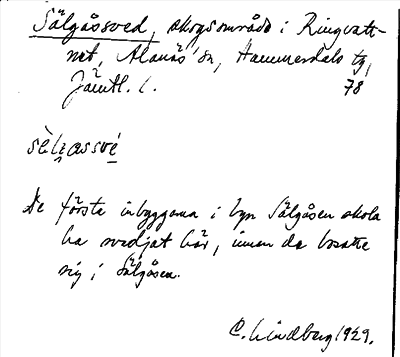 Sälgåssved, skogsområde i Ringvatt-
net, Alanäs sn, Hammerdals tg,
Jämtl. l. 78
sèlgassvé
De första inbyggarna i byn Sälgåsen skola
ha svedjat här, innan de bosatte
sig i Sälgåsen.
C. Lindberg 1929.